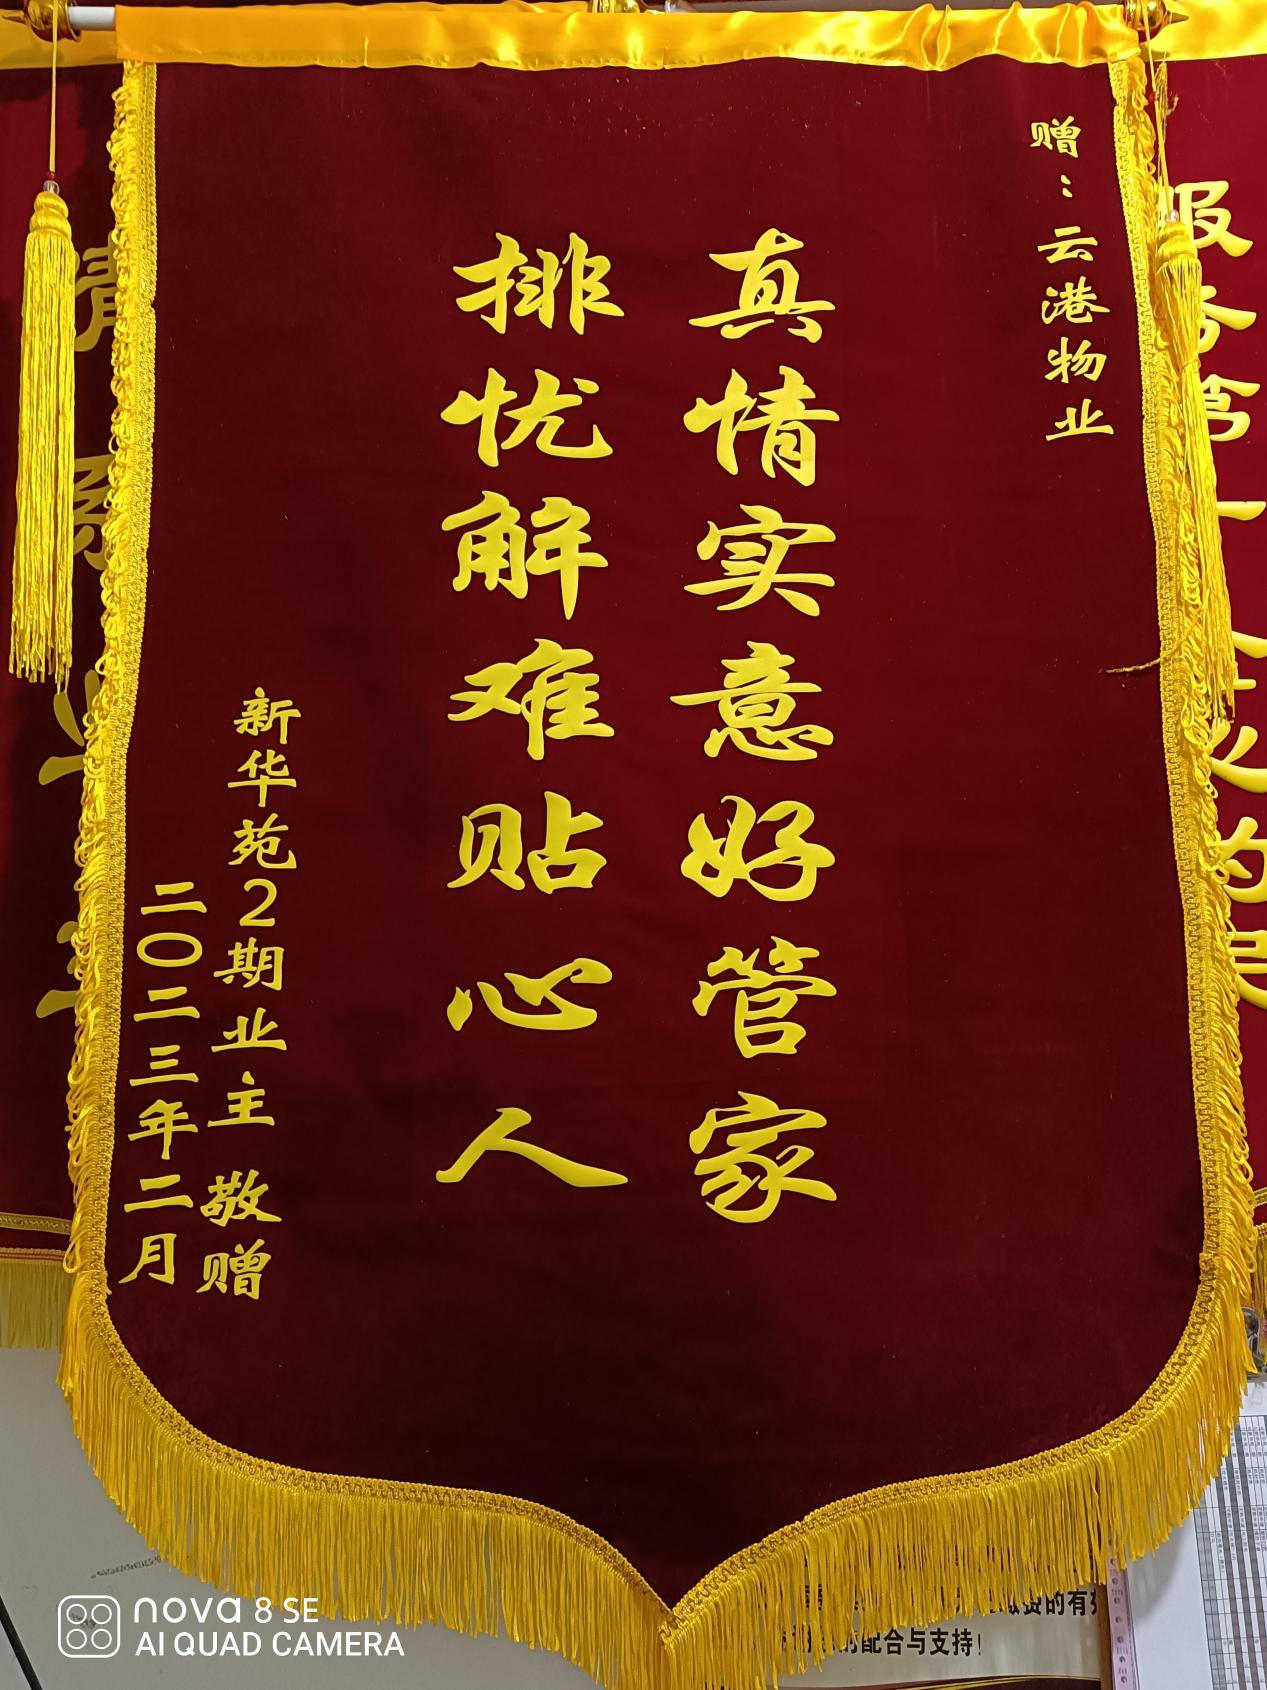 赠：云港物业
真情实意好管家
排忧解难贴心人
新华苑2期业主 敬赠
二〇二三年二月
情系业主
的配合与支持！
nova 8 SE
AI QUAD CAMERA